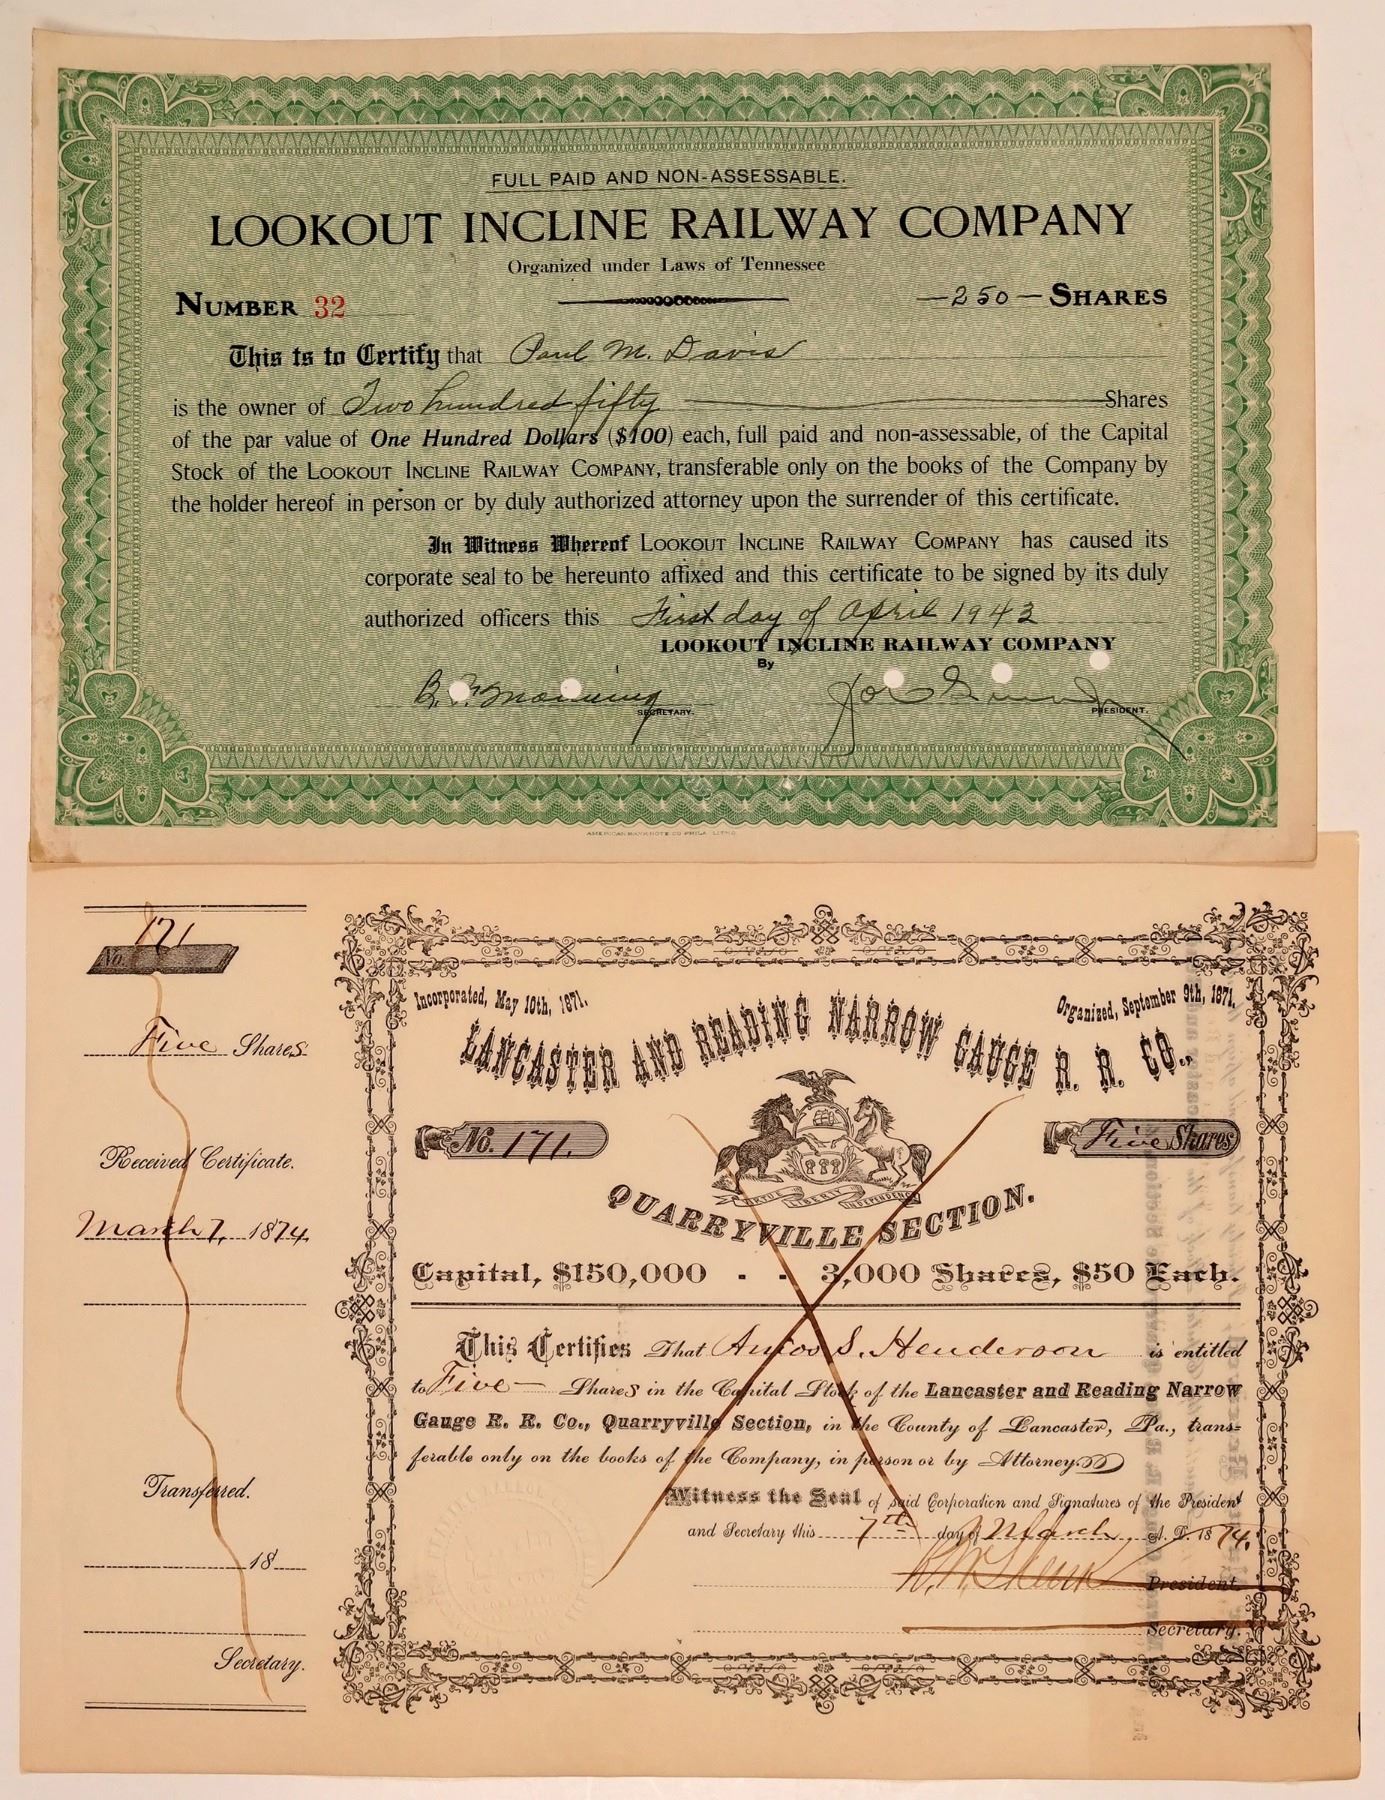 FULL PAID AND NON-ASSESSABLE.
LOOKOUT INCLINE RAILWAY COMPANY
Organized under Laws of Tennessee
NUMBER 32
—250— SHARES
This is to Certify that Paul M. Davis
is the owner of Two hundred fifty Shares
of the par value of One Hundred Dollars ($100) each, full paid and non-assessable, of the Capital
Stock of the LOOKOUT INCLINE RAILWAY COMPANY, transferable only on the books of the Company by
the holder hereof in person or by duly authorized attorney upon the surrender of this certificate.
In Witness Whereof LOOKOUT INCLINE RAILWAY COMPANY has caused its
corporate seal to be hereunto affixed and this certificate to be signed by its duly
authorized officers this First day of April 1943
LOOKOUT INCLINE RAILWAY COMPANY
By
SECRETARY.
PRESIDENT.
AMERICAN BANK NOTE CO PHILA. LITHO.
No. 171
Five Shares.
Received Certificate.
March 7, 1874.
Transferred.
18
Secretary.
Incorporated, May 10th, 1871.
Organized, September 9th, 1871.
LANCASTER AND READING NARROW GAUGE R. R. CO.,
No. 171.
Five Shares
VIRTUE LIBERTY INDEPENDENCE
QUARRYVILLE SECTION.
Capital, $150,000 - - 3,000 Shares, $50 Each.
This Certifies That Amos S. Henderson is entitled
to Five — Shares in the Capital Stock of the Lancaster and Reading Narrow
Gauge R. R. Co., Quarryville Section, in the County of Lancaster, Pa., trans-
ferable only on the books of the Company, in person or by Attorney.
Witness the Seal of said Corporation and Signatures of the President
and Secretary this 7th day of March A. D. 1874.
President.
Secretary.